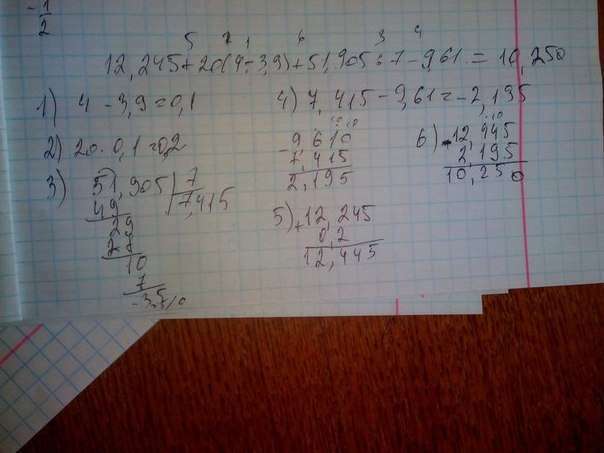 -1/2
5 2 1 6 3 4
12,245+20(4-3,9)+51,905:7-9,61=10,250
1) 4-3,9=0,1
4) 7,415-9,61=-2,195
10 10
-9,610
7,415
2,195
2) 20·0,1=0,2
3) 51,905|7
49 7,415
29
28
10
7
35/0
5) +12,245
0,2
12,445
6) 12,445
2,195
10,250